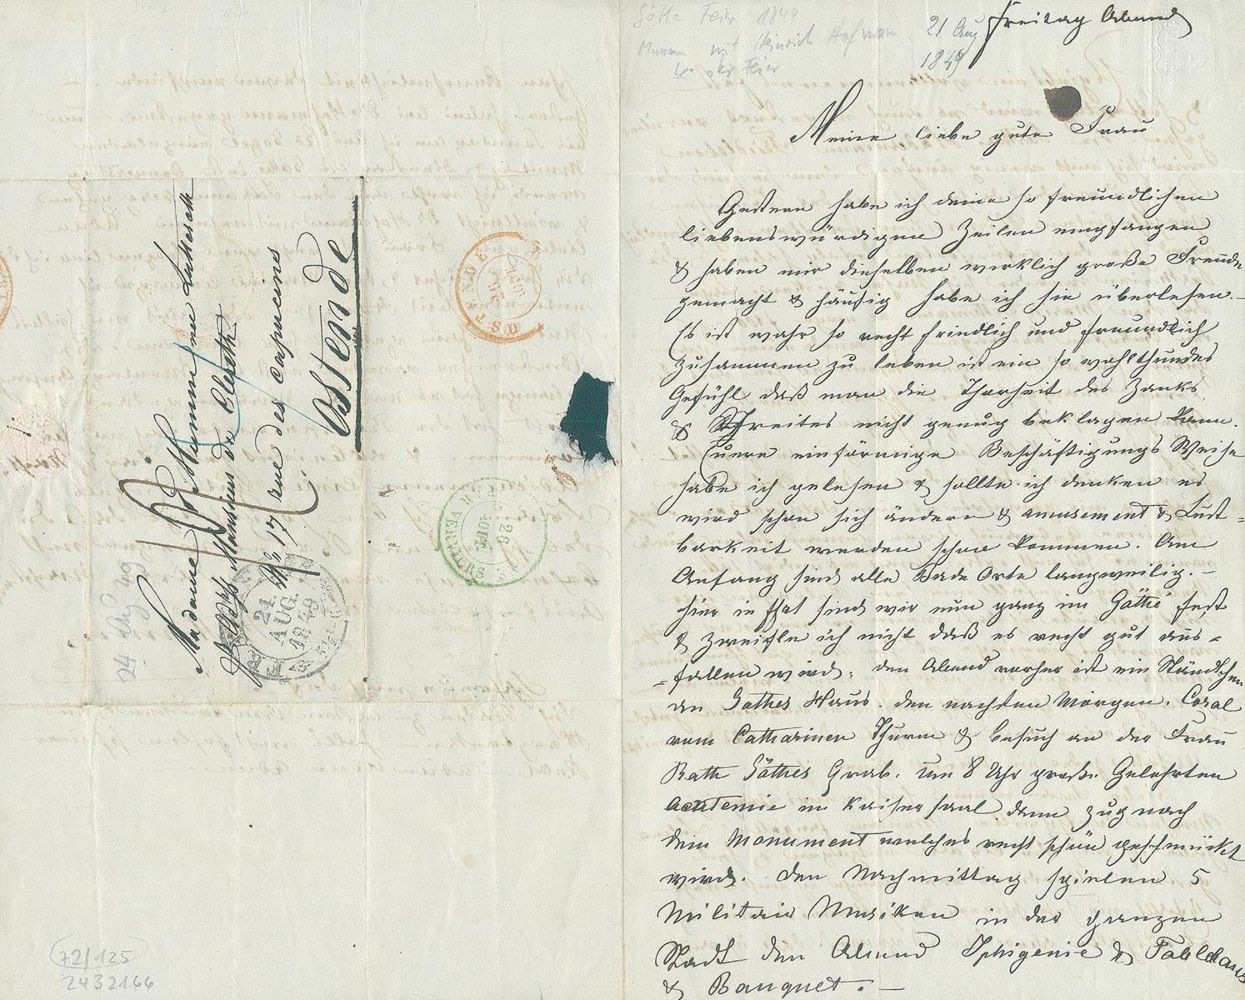 Göthe Feier 1849
mit Heinrich Hofmann
bei der Feier
21 Aug
1849
Freitag Abend
Meine liebe gute Frau
Gestern habe ich deine so freundlichen
liebenswürdigen Zeilen empfangen
& haben mir dieselben wirklich große Freude
gemacht & häufig habe ich sie überlesen. –
Es ist wahr so recht friedlich und freundlich
zusammen zu leben ist ein so wohlthuendes
Gefühl daß man die Thorheit des Zanks
& Streites nicht genug beklagen kann.
Euere einförmige Beschäftigungs Weise
habe ich gelesen & sollte ich denken es
wird schon sich ändern & amusement & Lust=
barkeit werden schon kommen. Am
Anfang sind alle Bade Orte langweilig. –
Hier in Ffurt sind wir nun ganz im Göthe fest
& zweifle ich nicht daß es recht gut aus=
=fallen wird; den Abend vorher ist ein Ständchen
an Göthes Haus. den nächsten Morgen. Coral
vom Catharinen Thurm & besuch an der Frau
Rath Göthes Grab. um 8 Uhr große Gelehrten
academie im Kaisersaal dann zug nach
dem Monument welches recht schön geschmückt
wird. Den Nachmittag spielen 5
Militair Musiken in der ganzen
Stadt den Abend Iphigenie & Tableaus
& Banquet. –
Madame de Mumm née Lutteroth
17 rue des Capucins
Ostende
OSTENDE
24
AUG.
1849
26
AOUT
VERVIERS
24 Aug 49
72/125
2432166